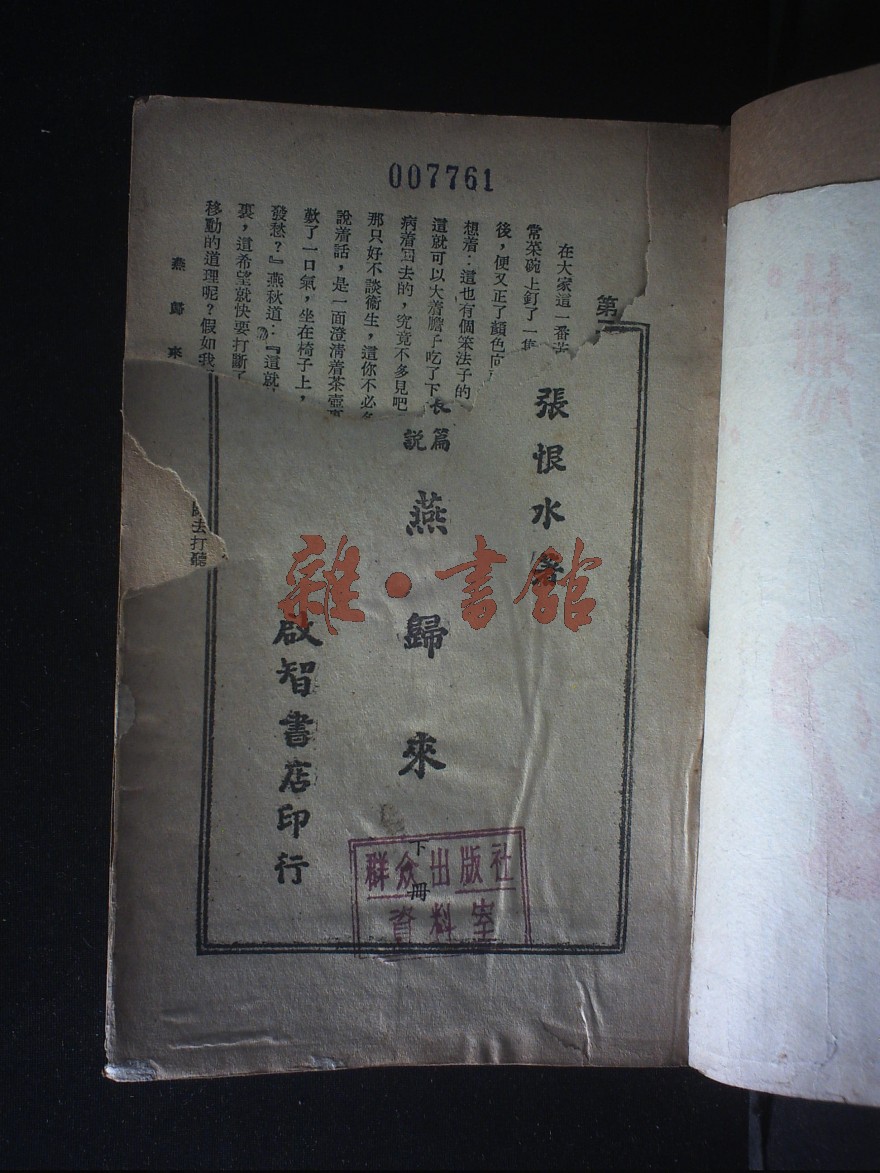 007761
第
在大家這一番
常菜碗上釘了一隻
後，便又正了顏色向
想着：這也有個笨法子的
這就可以大着膽子吃了下
病着回去的，究竟不多見吧
那只好不談衞生，這你不必
說着話，是一面澄清着茶壺裏
歎了一口氣，坐在椅子上，
發愁？』燕秋道：『這就
裏，這希望就快要打斷了
移動的道理呢？假如我
去打聽
燕歸來
張恨水著
長篇
說
燕歸來
下冊
啟智書店印行
群众出版社
資料室
雜·書館